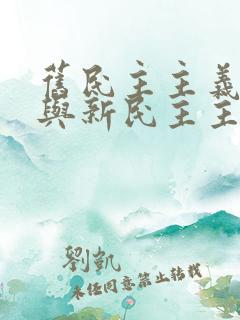 舊民主主義
與新民主主
劉凱
未經同意禁止轉載